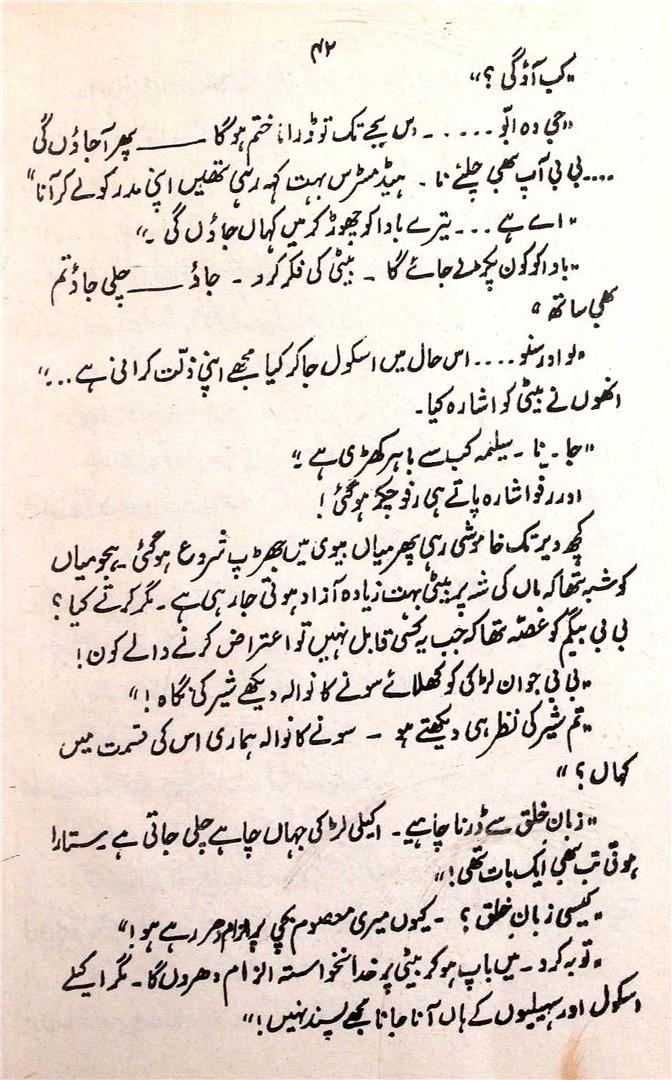 ۴۲
"کب آؤ گی ؟"
"جی وہ ابّو ..... ۔ دس بجے تک تو ڈراما ختم ہوگا ــــ پھر آجاؤں گی
.... بی بی آپ بھی چلئے نا ۔ ہیڈ مسٹرس بہت کہہ رہی تھیں اپنی مدر کو لے کر آنا"
"اے ہے ... ۔ تیرے باوا کو چھوڑ کر میں کہاں جاؤں گی ۔"
"باوا کو کون پکڑ لے جائے گا ۔ بیٹی کی فکر کرو ۔ جاؤ ــــ چلی جاؤ تم
بھی ساتھ"
"لو اور سنو .... اس حال میں اسکول جا کر کیا مجھے اپنی ذلّت کرانی ہے ...."
انھوں نے بیٹی کو اشارہ کیا۔
"جا ۔ نا ۔ سلیمہ کب سے باہر کھڑی ہے ۔"
اور رفو اشارہ پاتے ہی رفو چکر ہوگئی !
کچھ دیر تک خاموشی رہی پھر میاں بیوی میں جھڑپ شروع ہوگئی ۔ ہجو میاں
کو شبہ تھا کہ ماں کی شہ پر بیٹی بہت زیادہ آزاد ہوتی جارہی ہے ۔ مگر کرتے کیا ؟
بی بی بیگم کو غصّہ تھا کہ جب یہ کسی قابل نہیں تو اعتراض کرنے والے کون !
"بی بی جوان لڑکی کو کھلائے سونے کا نوالہ دیکھے شیر کی نگاہ !"
"تم شیر کی نظر ہی دیکھتے ہو ۔ سونے کا نوالہ ہماری اس کی قسمت میں
کہاں ؟"
"زبان خلق سے ڈرنا چاہیے ۔ اکیلی لڑکی جہاں چاہے چلی جاتی ہے ۔ ستارا
ہوتی تب بھی ایک بات تھی !"
"کیسی زبانِ خلق ؟ ۔ کیوں میری معصوم بچی پر الزام دھر رہے ہو !"
"توبہ کرو ۔ میں باپ ہو کر بیٹی پر خدانخواستہ الزام دھروں گا ۔ مگر اکیلے
اسکول اور سہیلیوں کے ہاں آنا جانا مجھے پسند نہیں !"